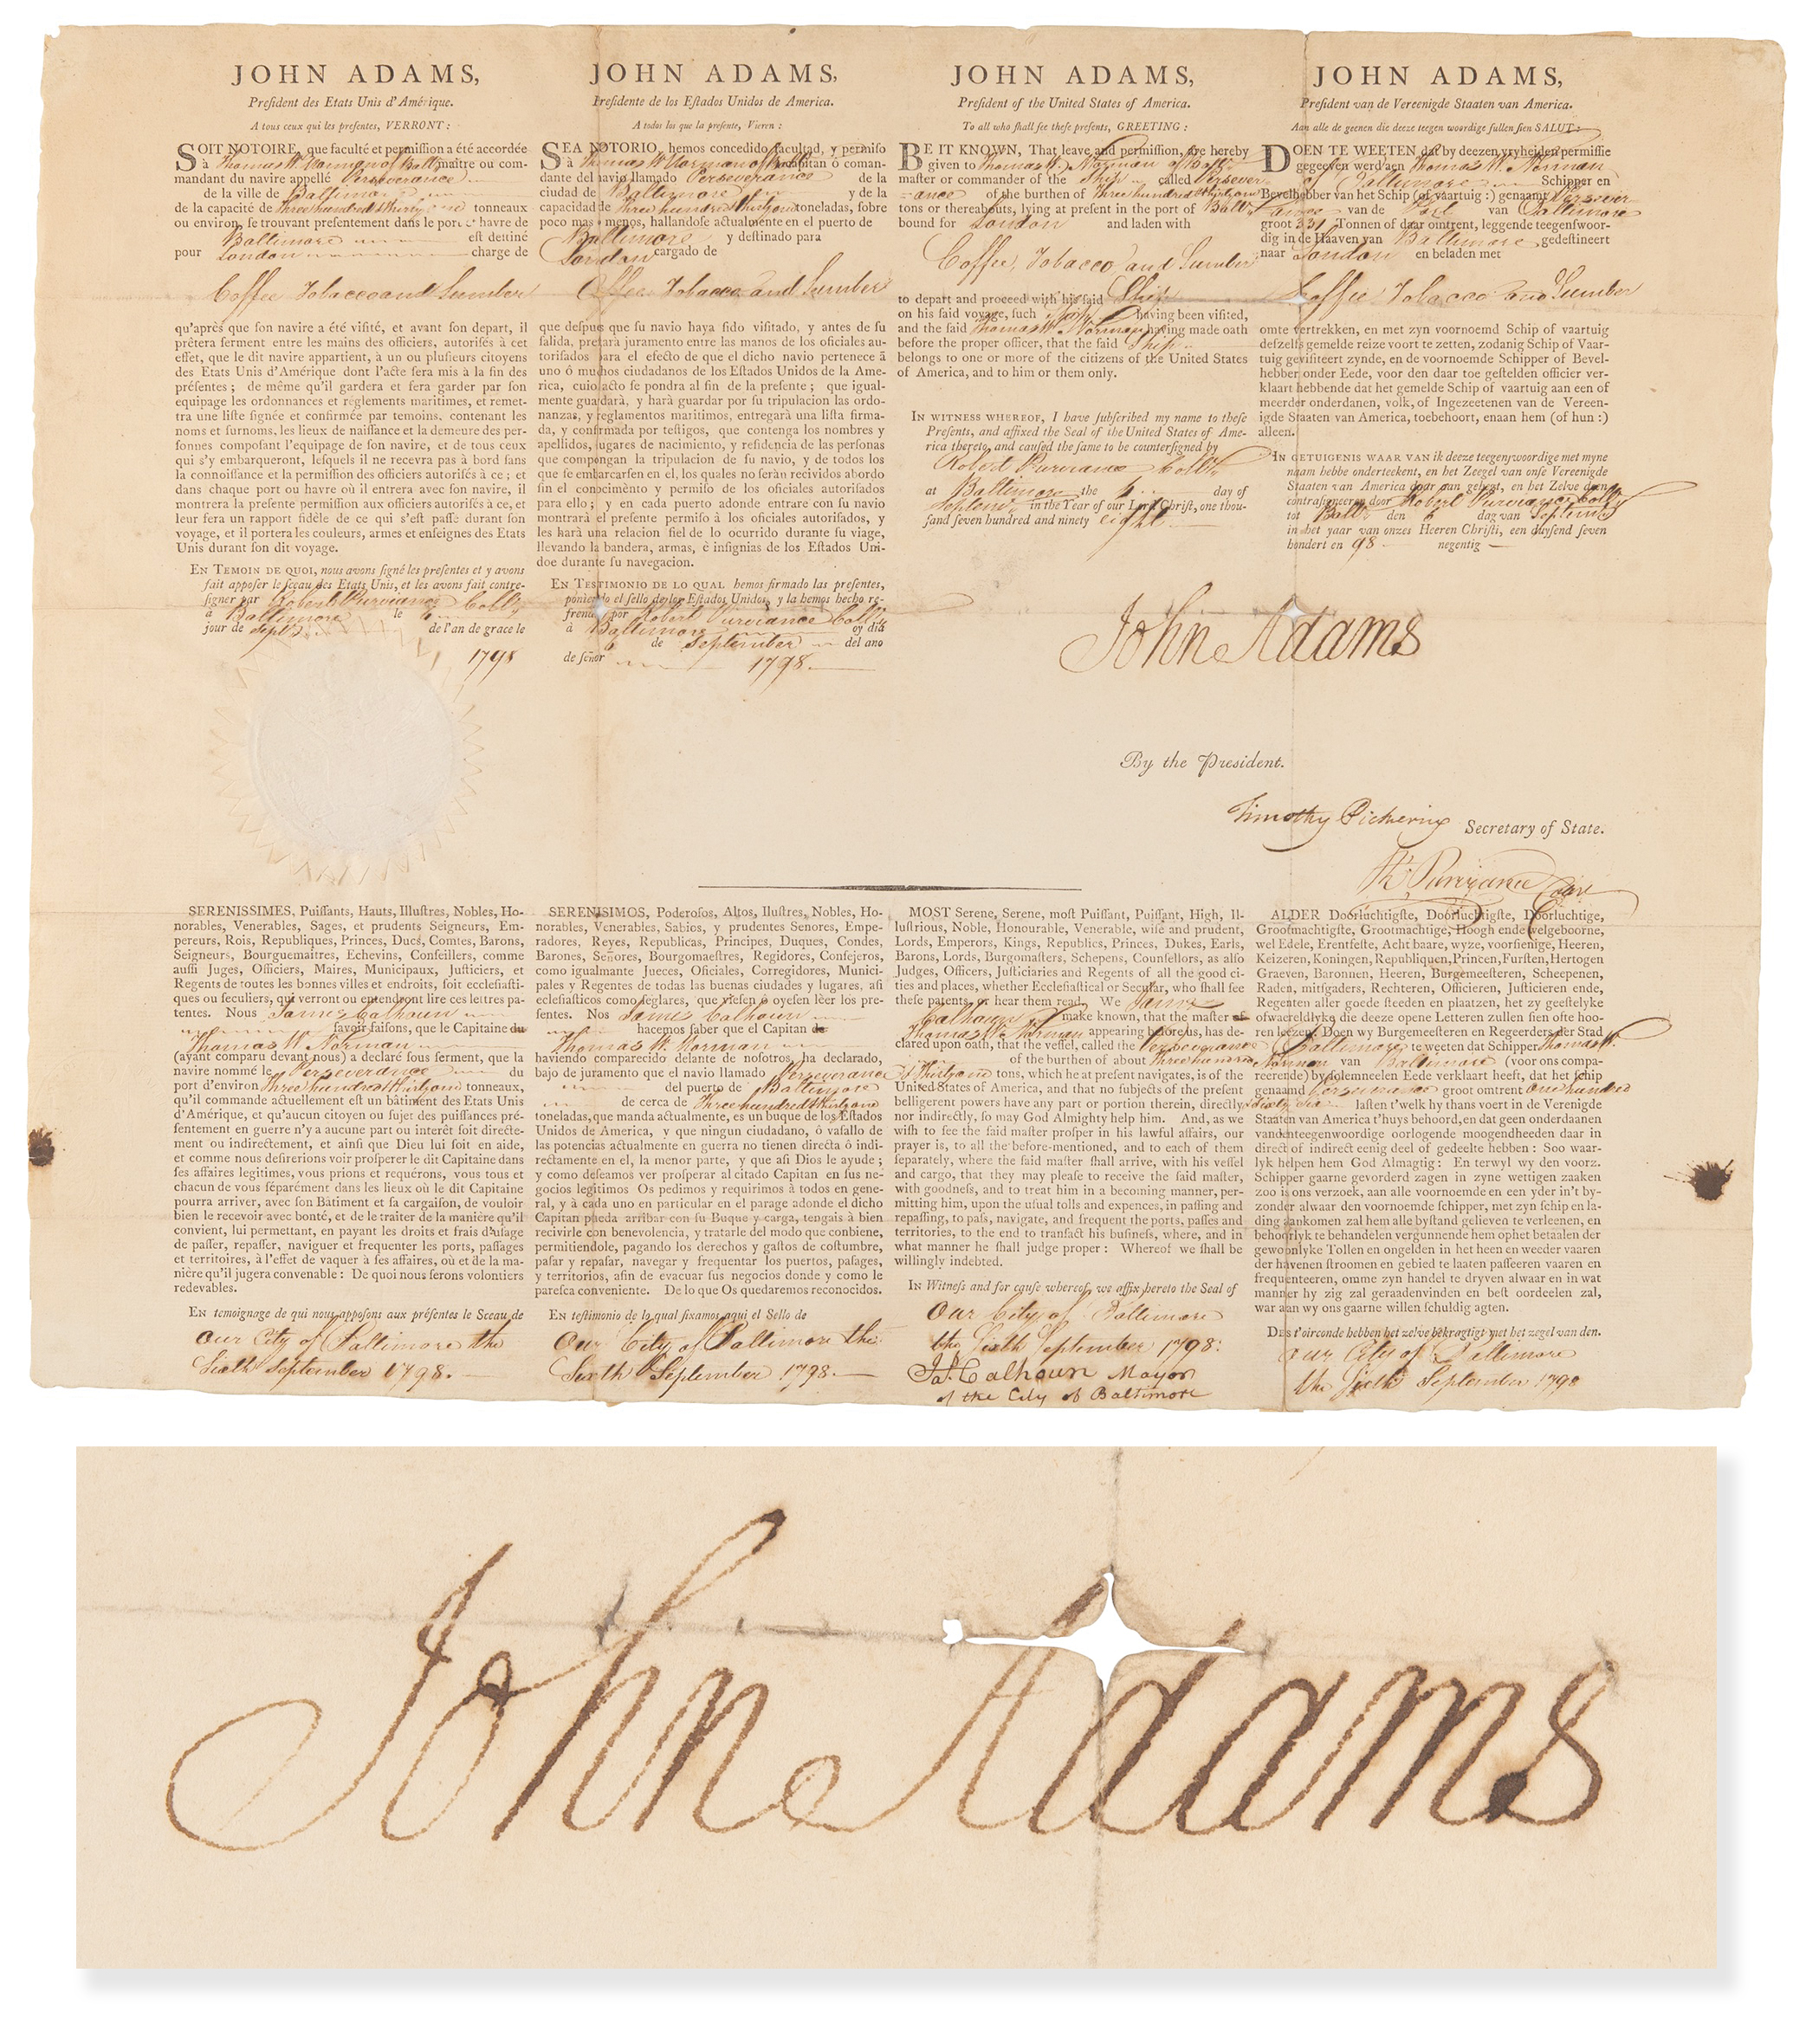 JOHN ADAMS,
Preſident des Etats Unis d'Amérique.
A tous ceux qui les preſentes, VERRONT:
SOIT NOTOIRE, que faculté et permiſſion a été accordée
à Thomas W. Norman of Balt. maître ou com-
mandant du navire appellé Perseverance
de la ville de Baltimore
de la capacité de three hundred & thirty one tonneaux
ou environ, ſe trouvant preſentement dans le port et havre de
Baltimore eſt deſtiné
pour London charge de
Coffee Tobacco and Lumber
qu'après que ſon navire a été viſité, et avant ſon depart, il
prêtera ſerment entre les mains des officiers, autoriſés à cet
effet, que le dit navire appartient, à un ou pluſieurs citoyens
des Etats Unis d'Amérique dont l'acte ſera mis à la fin des
préſentes; de même qu'il gardera et fera garder par ſon
equipage les ordonnances et règlements maritimes, et remet-
tra une liſte ſignée et confirmée par temoins, contenant les
noms et ſurnoms, les lieux de naiſſance et la demeure des per-
ſonnes compoſant l'equipage de ſon navire, et de tous ceux
qui s'y embarqueront, leſquels il ne recevra pas à bord ſans
la connoiſſance et la permiſſion des officiers autoriſés à ce; et
dans chaque port ou havre où il entrera avec ſon navire, il
montrera la preſente permiſſion aux officiers autoriſés à ce, et
leur fera un rapport fidèle de ce qui s'eſt paſſé durant ſon
voyage, et il portera les couleurs, armes et enſeignes des Etats
Unis durant ſon dit voyage.
EN TEMOIN DE QUOI, nous avons ſigné les preſentes et y avons
fait appoſer le ſceau des Etats Unis, et les avons fait contre-
ſigner par Robert Purviance Collr
à Baltimore le 6
jour de Septr de l'an de grace le
1798
JOHN ADAMS,
Preſidente de los Eſtados Unidos de America.
A todos los que la preſente, Vieren:
SEA NOTORIO, hemos concedido facultad, y permiſo
à Thomas W. Norman of Balt. capitàn ò coman-
dante del navio llamado Perseverance de la
ciudad de Baltimore y de la
capacidad de three hundred & thirty one toneladas, ſobre
poco mas o menos, hallandoſe actualmente en el puerto de
Baltimore y deſtinado para
London cargado de
Coffee Tobacco and Lumber
que deſpue que ſu navio haya ſido viſitado, y antes de ſu
ſalida, pretarà juramento entre las manos de los oficiales au-
toriſados para el efecto de que el dicho navio pertenece ã
uno ó muchos ciudadanos de los Eſtados Unidos de la Ame-
rica, cuio acto ſe pondra al fin de la preſente; que igual-
mente guardarà, y harà guardar por ſu tripulacion las ordo-
nanzas, y reglamentos maritimos, entregarà una liſta firma-
da, y confirmada por teſtigos, que contenga los nombres y
apellidos, lugares de nacimiento, y reſidencia de las perſonas
que compongan la tripulacion de ſu navio, y de todos los
que ſe embarcarſen en el, los quales no ſeràn recividos abordo
ſin el conocimènto y permiſo de los oficiales autoriſados
para ello; y en cada puerto adonde entrare con ſu navio
montrarà el preſente permiſo à los oficiales autoriſados, y
les harà una relacion fiel de lo ocurrido durante ſu viage,
llevando la bandera, armas, è inſignias de los Eſtados Uni-
doe durante ſu navegacion.
EN TESTIMONIO DE LO QUAL hemos firmado las preſentes,
poniendo el ſello de los Eſtados Unidos, y la hemos hecho re-
frendar por Robert Purviance Collr
à Baltimore oy dià
6 de September del ano
de ſeñor 1798.
JOHN ADAMS,
Preſident of the United States of America.
To all who ſhall ſee theſe preſents, GREETING:
BE IT KNOWN, That leave and permiſſion, are hereby
given to Thomas W. Norman of Balto.
maſter or commander of the Ship called Persever
-ance of the burthen of Three hundred & thirty one
tons or thereabouts, lying at preſent in the port of Balt.
bound for London and laden with
Coffee, Tobacco and Lumber
to depart and proceed with his ſaid Ship
on his ſaid voyage, ſuch Ship having been viſited,
and the ſaid Thomas W. Norman having made oath
before the proper officer, that the ſaid Ship
belongs to one or more of the citizens of the United States
of America, and to him or them only.
IN WITNESS WHEREOF, I have ſubſcribed my name to theſe
Preſents, and affixed the Seal of the United States of Ame-
rica thereto, and cauſed the ſame to be counterſigned by
Robert Purviance Collr
at Baltimore the 6 day of
Septemr in the Year of our Lord Chriſt, one thou-
ſand ſeven hundred and ninety eight
JOHN ADAMS,
Preſident van de Vereenigde Staaten van America.
Aan alle de geenen die deeze teegen woordige ſullen ſien SALUT:
DOEN TE WEETEN dat by deezen vryheid en permiſſie
gegeeven werd aen Thomas W. Norman
of Baltimore Schipper en
Bevelhebber van het Schip (of vaartuig:) genaamt Persever
ance van de Port van Baltimore
groot 331 Tonnen of daar omtrent, leggende teegenſwoor-
dig in de Haaven van Baltimore gedeſtineert
naar London en beladen met
Coffee Tobacco and Lumber
omte vertrekken, en met zyn voornoemd Schip of vaartuig
deſzelfs gemelde reize voort te zetten, zodanig Schip of Vaar-
tuig geviſiteert zynde, en de voornoemde Schipper of Bevel-
hebber onder Eede, voor den daar toe geſtelden officier ver-
klaart hebbende dat het gemelde Schip of vaartuig aan een of
meerder onderdanen, volk, of Ingezeetenen van de Vereen-
igde Staaten van America, toebehoort, enaan hem (of hun:)
alleen.
IN GETUIGENIS WAAR VAN ik deeze teegenwoordige met myne
naam hebbe onderteekent, en het Zeegel van onſe Vereenigde
Staaten van America daar aan gehegt, en het Zelve doen
contraſigneeren door Robert Purviance Collr
tot Balto. den 6 dag van September
in het yaar van onzes Heeren Chriſti, een duyſend ſeven
hondert en 98 negentig
John Adams
By the President.
Timothy Pickering Secretary of State.
Rt. Purviance Collr
SERENISSIMES, Puiſſants, Hauts, Illuſtres, Nobles, Ho-
norables, Venerables, Sages, et prudents Seigneurs, Em-
pereurs, Rois, Republiques, Princes, Ducs, Comtes, Barons,
Seigneurs, Bourguemaîtres, Echevins, Conſeillers, comme
auſſi Juges, Officiers, Maires, Municipaux, Juſticiers, et
Regents de toutes les bonnes villes et endroits, ſoit eccleſiaſti-
ques ou ſeculiers, qui verront ou entendront lire ces lettres pa-
tentes. Nous James Calhoun
ſavoir faiſons, que le Capitaine du
Thomas W. Norman
(ayant comparu devant nous) a declaré ſous ſerment, que la
navire nommé le Perseverance du
port d'environ three hundred & thirty one tonneaux,
qu'il commande actuellement eſt un bâtiment des Etats Unis
d'Amérique, et qu'aucun citoyen ou ſujet des puiſſances pré-
ſentement en guerre n'y a aucune part ou interêt ſoit directe-
ment ou indirectement, et ainſi que Dieu lui ſoit en aide,
et comme nous deſirerions voir proſperer le dit Capitaine dans
ſes affaires legitimes, vous prions et requérons, vous tous et
chacun de vous ſéparément dans les lieux où le dit Capitaine
pourra arriver, avec ſon Bâtiment et ſa cargaiſon, de vouloir
bien le recevoir avec bonté, et de le traiter de la manière qu'il
convient, lui permettant, en payant les droits et frais d'uſage
de paſſer, repaſſer, naviguer et frequenter les ports, paſſages
et territoires, à l'effet de vaquer à ſes affaires, où et de la ma-
nière qu'il jugera convenable: De quoi nous ſerons volontiers
redevables.
EN temoignage de qui nous appoſons aux préſentes le Sceau de
Our City of Baltimore the
Sixth September 1798.
SERENISIMOS, Poderoſos, Altos, Iluſtres, Nobles, Ho-
norables, Venerables, Sabios, y prudentes Senores, Empe-
radores, Reyes, Republicas, Principes, Duques, Condes,
Barones, Señores, Bourgomaeſtres, Regidores, Conſejeros,
como igualmante Jueces, Oficiales, Corregidores, Munici-
pales y Regentes de todas las buenas ciudades y lugares, aſi
ecleſiaſticos como ſeglares, que vieſen ò oyeſen lèer los pre-
ſentes. Nos James Calhoun
hacemos ſaber que el Capitan de
Thomas W. Norman
haviendo comparecido delante de noſotros, ha declarado,
bajo de juramento que el navio llamado Perseverance
del puerto de Baltimore
de cerca de three hundred & thirty one
toneladas, que manda actualmente, es un buque de los Eſtados
Unidos de America, y que ningun ciudadano, ô vaſallo de
las potencias actualmente en guerra no tienen directa ô indi-
rectamente en el, la menor parte, y que aſi Dios le ayude;
y como deſeamos ver proſperar al citado Capitan en ſus ne-
gocios legitimos Os pedimos y requirimos à todos en gene-
ral, y à cada uno en particular en el parage adonde el dicho
Capitan pueda arribar con ſu Buque y carga, tengais à bien
recivirle con benevolencia, y tratarle del modo que conbiene,
permitiendole, pagando los derechos y gaſtos de coſtumbre,
paſar y repaſar, navegar y frequentar los puertos, paſages,
y territorios, afin de evacuar ſus negocios donde y como le
pareſca conveniente. De lo que Os quedaremos reconocidos.
EN teſtimonio de lo qual ſixamos aqui el Sello de
Our City of Baltimore the
Sixth September 1798.
MOST Serene, Serene, moſt Puiſſant, Puiſſant, High, Il-
luſtrious, Noble, Honourable, Venerable, wiſe and prudent,
Lords, Emperors, Kings, Republics, Princes, Dukes, Earls,
Barons, Lords, Burgomaſters, Schepens, Counſellors, as alſo
Judges, Officers, Juſticiaries and Regents of all the good ci-
ties and places, whether Eccleſiaſtical or Secular, who ſhall ſee
theſe patents, or hear them read, We James
Calhoun make known, that the maſter of
Thomas W. Norman appearing before us, has de-
clared upon oath, that the veſſel, called the Perseverance
of the burthen of about three hundred
& Thirty one tons, which he at preſent navigates, is of the
United States of America, and that no ſubjects of the preſent
belligerent powers have any part or portion therein, directly
nor indirectly, ſo may God Almighty help him. And, as we
wiſh to ſee the ſaid maſter proſper in his lawful affairs, our
prayer is, to all the before-mentioned, and to each of them
ſeparately, where the ſaid maſter ſhall arrive, with his veſſel
and cargo, that they may pleaſe to receive the ſaid maſter,
with goodneſs, and to treat him in a becoming manner, per-
mitting him, upon the uſual tolls and expences, in paſſing and
repaſſing, to paſs, navigate, and frequent the ports, paſſes and
territories, to the end to tranſact his buſineſs, where, and in
what manner he ſhall judge proper: Whereof we ſhall be
willingly indebted.
IN Witneſs and for cauſe whereof, we affix hereto the Seal of
Our City of Baltimore
the Sixth September 1798.
Jas. Calhoun Mayor
of the City of Baltimore
ALDER Doorluchtigſte, Doorluchtigſte, Doorluchtige,
Grootmachtigſte, Grootmachtige, Hoogh ende welgeboorne,
wel Edele, Erentfeſte, Acht baare, wyze, voorſienige, Heeren,
Keizeren, Koningen, Republiquen, Princen, Furſten, Hertogen
Graeven, Baronnen, Heeren, Burgemeeſteren, Scheepenen,
Raden, mitſgaders, Rechteren, Officieren, Juſticieren ende,
Regenten aller goede ſteeden en plaatzen, het zy geeſtelyke
ofwaereldlyke die deeze opene Letteren zullen ſien ofte hoo-
ren leezen. Doen wy Burgemeeſteren en Regeerders der Stad
Baltimore te weeten dat Schipper Thomas W.
Norman van Baltimore (voor ons compa-
reerende) by ſolemneelen Eede verklaart heeft, dat het ſchip
genaamd Perseverance groot omtrent one hundred
& sixty six laſten t'welk hy thans voert in de Verenigde
Staaten van America t'huys behoord, en dat geen onderdaanen
vandenteegenwoordige oorlogende moogendheeden daar in
direct of indirect eenig deel of gedeelte hebben: Soo waar-
lyk helpen hem God Almagtig: En terwyl wy den voorz.
Schipper gaarne gevorderd zagen in zyne wettigen zaaken
zoo is ons verzoek, aan alle voornoemde en een yder in't by-
zonder alwaar den voornoemde ſchipper, met zyn ſchip en la-
ding aankomen zal hem alle byſtand gelieven te verleenen, en
behoorlyk te behandelen vergunnende hem ophet betaalen der
gewoonlyke Tollen en ongelden in het heen en weeder vaaren
der havenen ſtroomen en gebied te laaten paſſeeren vaaren en
frequenteeren, omme zyn handel te dryven alwaar en in wat
manner hy zig zal geraadenvinden en beſt oordeelen zal,
war aan wy ons gaarne willen ſchuldig agten.
DES t'oirconde hebben het zelve bekragtigt met het zegel van den.
Our City of Baltimore
the Sixth September 1798
John Adams